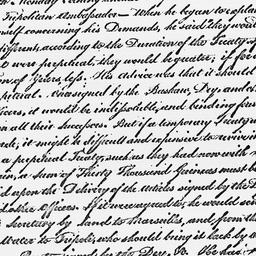 Tripolitan Ambassador — When he began to explain
self concerning his Demands, he said they would
different, according to the Duration of the Treaty.
were perpetual, they would be greater; if for
of Years, less. His advice was that it should
petual. Once signed by the Bashaw, Dey, and
ficers, it would be indissoluble and binding for
on all their successors. But if a temporary Treaty
made, it might be difficult and expensive to revive
a perpetual Treaty, such as they had now with
in, a sum of Thirty Thousand Guineas must be
id upon the Delivery of the Articles signed by the D
d other Officers. If it were agreed to, he would send
Secretary by Land to Marseilles, and from thence
Water to Tripoli, who should bring it back by
signed by the Dey, &c. He had